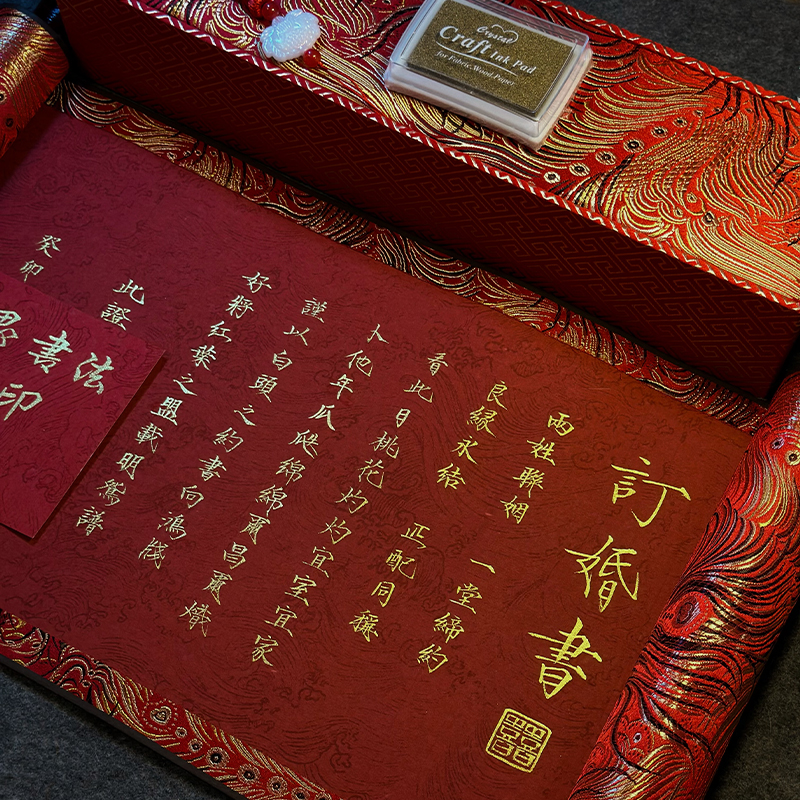 訂婚書
兩姓聯姻 一堂締約
良緣永結 匹配同稱
看此日桃花灼灼宜室宜家
卜他年瓜瓞綿綿爾昌爾熾
謹以白頭之約書向鴻箋
好將紅葉之盟載明鴛譜
此證
癸卯
書法
印
Crystal
Craft Ink Pad
for Fabric, Wood, Paper